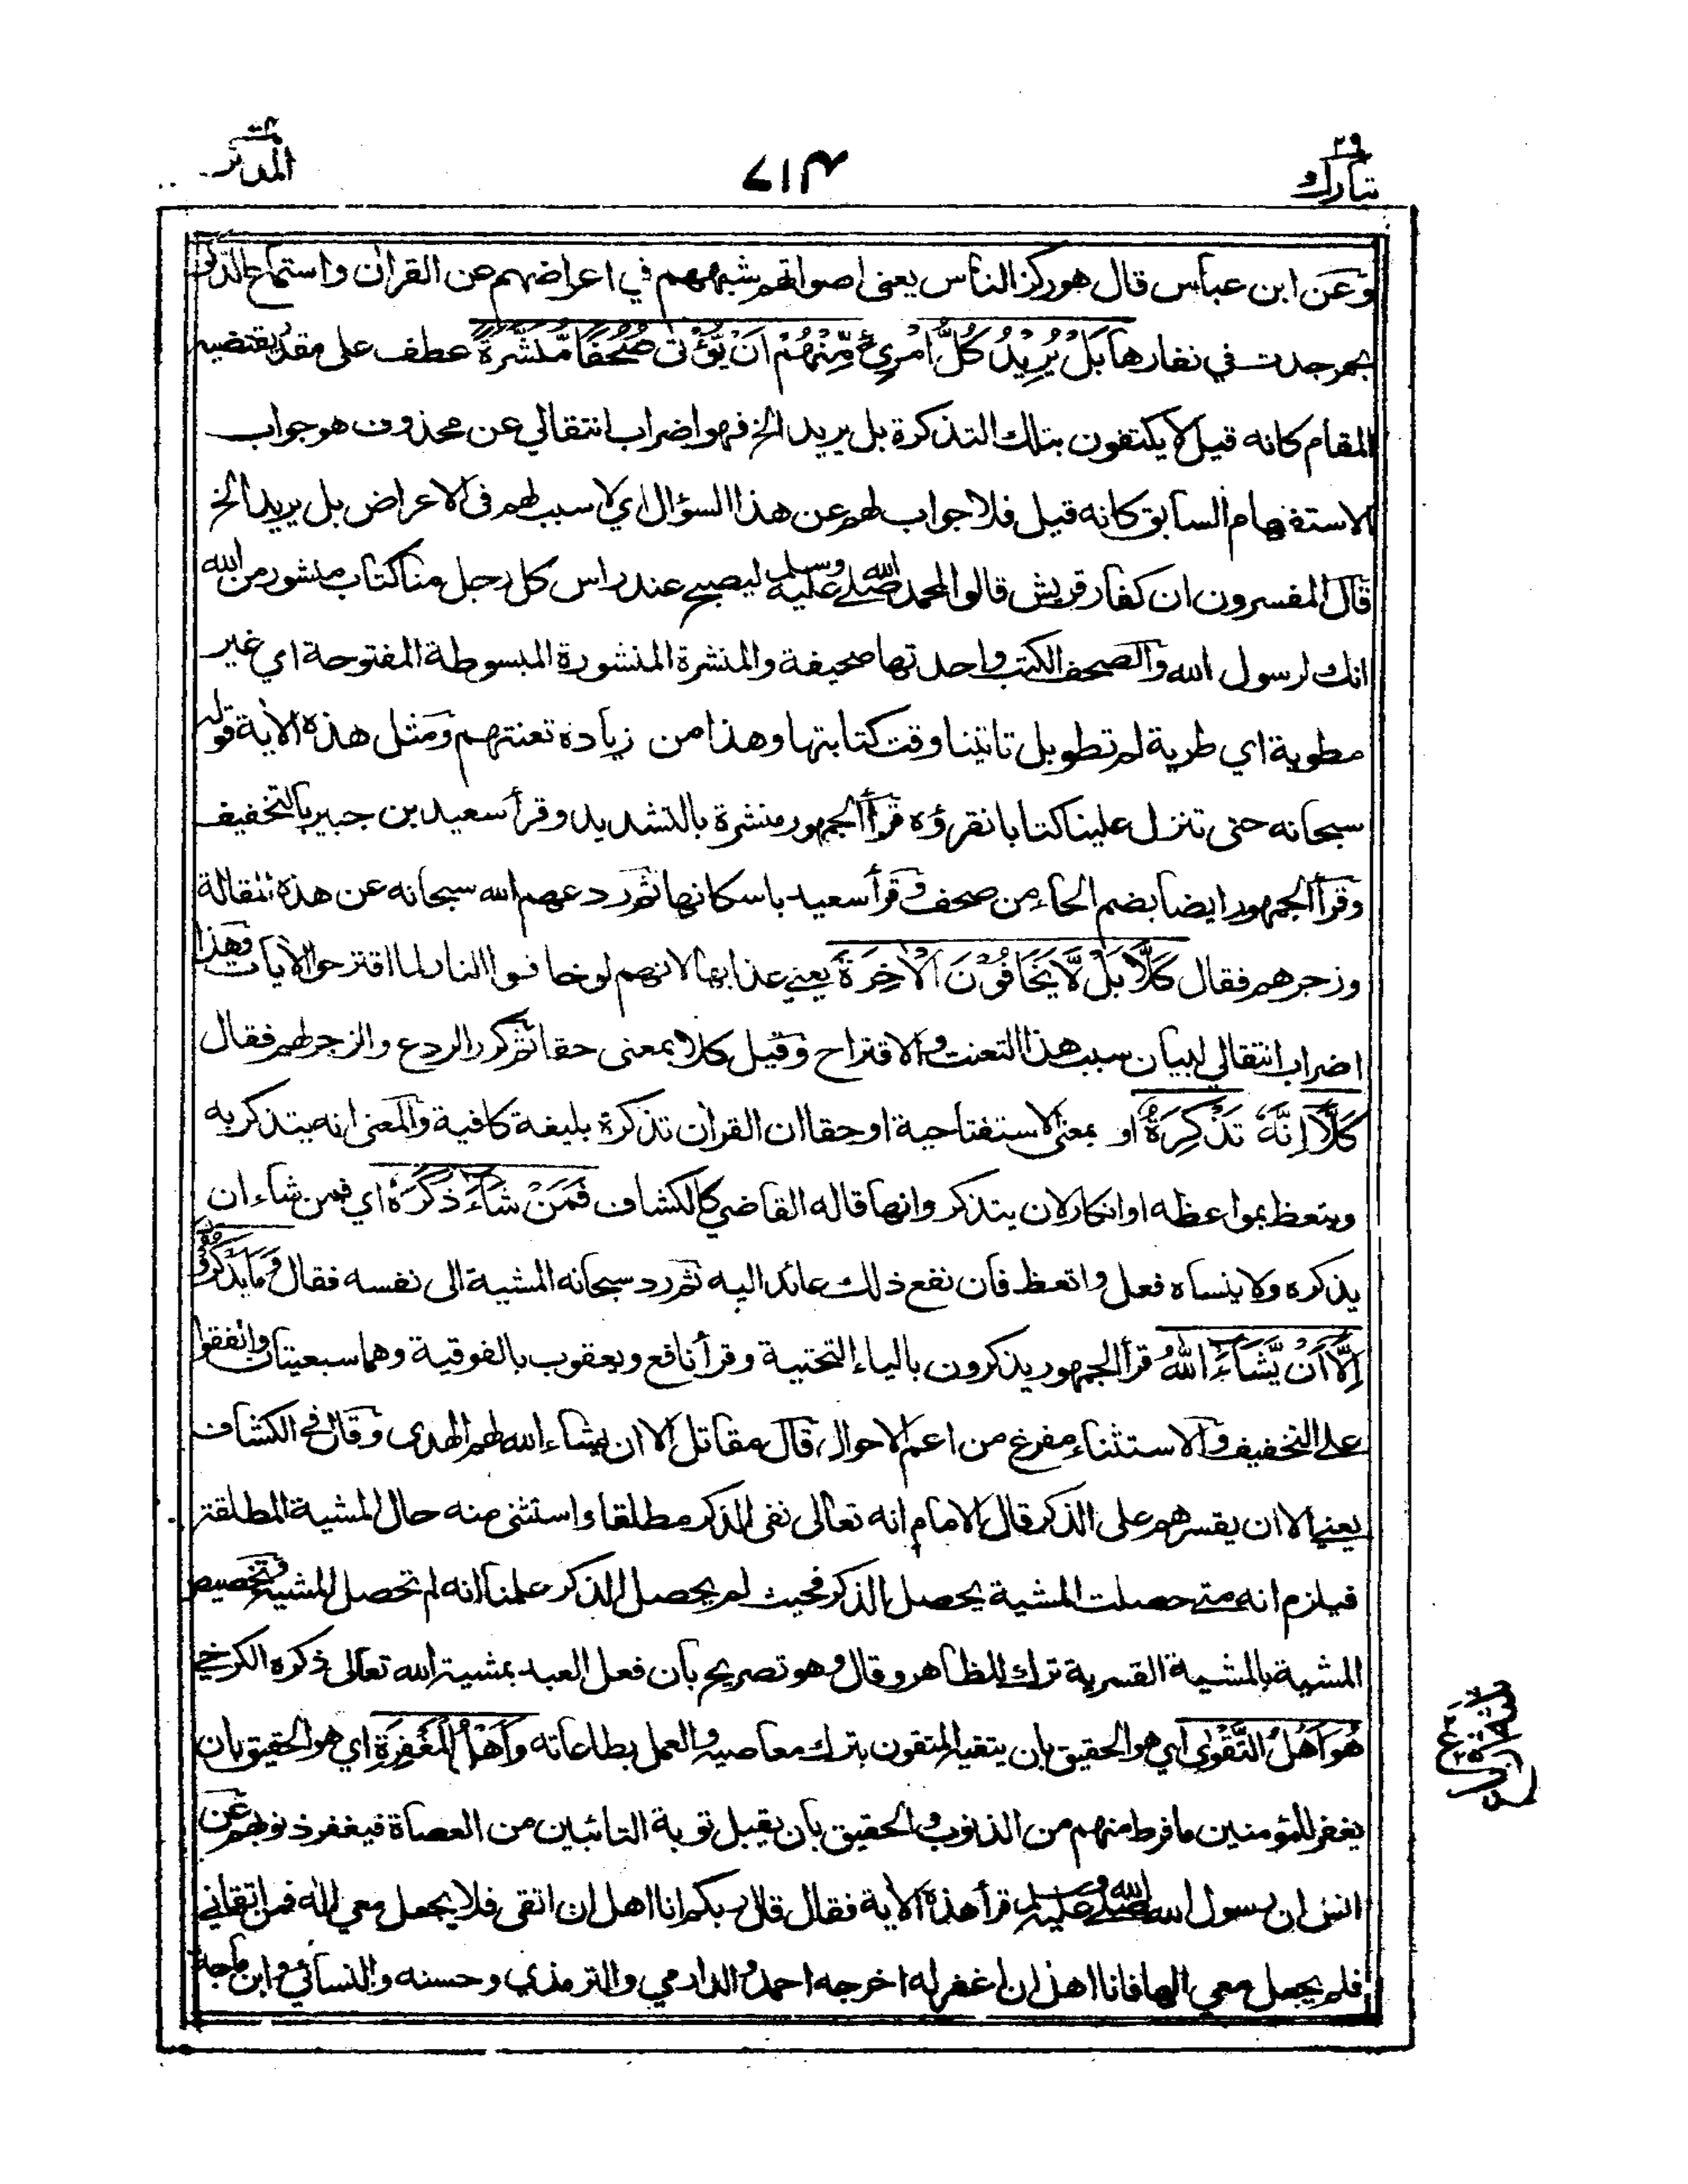 تبارك ٢٩
٤١٧
المدثر
وعن ابن عباس قال هو ركز الناس يعني اصواتهم شبههم في اعراضهم عن القران واستماع الذكر
بحمر جدت في نفارها بَلْ يُرِيْدُ كُلُّ امْرِئٍ مِّنْهُمْ اَنْ يُّؤْتٰى صُحُفًا مُّنَشَّرَةً عطف على مقدر يقتضيه
المقام كانه قيل لا يكتفون بتلك التذكرة بل يريد الخ فهو اضراب انتقالي عن محذوف هو جواب
الاستفهام السابق كانه قيل فلا جواب لهم عن هذا السؤال اي لا سبب لهم في الاعراض بل يريد الخ
قال المفسرون ان كفار قريش قالوا لمحمد صلى الله عليه وسلم ليصبح عند راس كل رجل منا كتاب منشور من الله
انك لرسول الله والصحف الكتب واحدتها صحيفة والمنشرة المنشورة المبسوطة المفتوحة اي غير
مطوية اي طرية لم تطو بل تاتينا وقت كتابتها وهذا من زيادة تعنتهم ومثل هذه الاية قوله
سبحانه حتى تنزل علينا كتابا نقرؤه قرأ الجمهور منشرة بالتشديد وقرأ سعيد بن جبير بالتخفيف
وقرأ الجمهور ايضا بضم الحاء من صحف وقرأ سعيد باسكانها ثم ردعهم الله سبحانه عن هذه المقالة
وزجرهم فقال كَلَّا بَلْ لَّا يَخَافُوْنَ الْاٰخِرَةَ يعني عذابها لانهم لو خافوا النار لما اقترحوا الايات وهذا
اضراب انتقالي لبيان سبب هذا التعنت والاقتراح وقيل كلا بمعنى حقا ثم كرر الردع والزجر لهم فقال
كَلَّا اِنَّهٗ تَذْكِرَةٌ او بمعنى الا ستفتاحية او حقا ان القران تذكرة بليغة كافية والمعنى انه يتذكر به
ويتعظ بمواعظه او انكار لان يتذكر وا بها قاله القاضي كالكشاف فَمَنْ شَاءَ ذَكَرَهٗ اي فمن شاء ان
يذكره ولا ينساه فعل واتعظ فان نفع ذلك عائد اليه ثم رد سبحانه المشية الى نفسه فقال وَمَا يَذْكُرُوْنَ
اِلَّا اَنْ يَّشَاءَ اللّٰهُ قرأ الجمهور يذكرون بالياء التحتية وقرأ نافع ويعقوب بالفوقية وهما سبعيتان واتفقوا
على التخفيف والاستثناء مفرغ من اعم الاحوال قال مقاتل الا ان يشاء الله لهم الهدى وقال في الكشاف
يعني الا ان يقسرهم على الذكر قال الامام انه تعالى نفى الذكر مطلقا واستثنى منه حال المشية المطلقة
فيلزم انه متى حصلت المشية يحصل الذكر فحيث لم يحصل الذكر علمنا انه لم تحصل المشية وتخصيص
المشية بالمشية القسرية ترك للظاهر وقال وهو تصريح بان فعل العبد بمشية الله تعالى ذكره الكرخي
هُوَ اَهْلُ التَّقْوٰى اي هو الحقيق بان يتقيه المتقون بترك معاصيه والعمل بطاعاته وَاَهْلُ الْمَغْفِرَةِ اي هو الحقيق بان
يغفر للمؤمنين ما فرط منهم من الذنوب والحقيق بان يقبل توبة التائبين من العصاة فيغفر ذنوبهم عن
انس ان رسول الله صلى الله عليه وسلم قرأ هذه الاية فقال قال ربكم انا اهل ان اتقى فلا يجعل معي اله فمن اتقاني
فلم يجعل معي الها فانا اهل ان اغفر له اخرجه احمد والدارمي والترمذي وحسنه والنسائي وابن ماجة